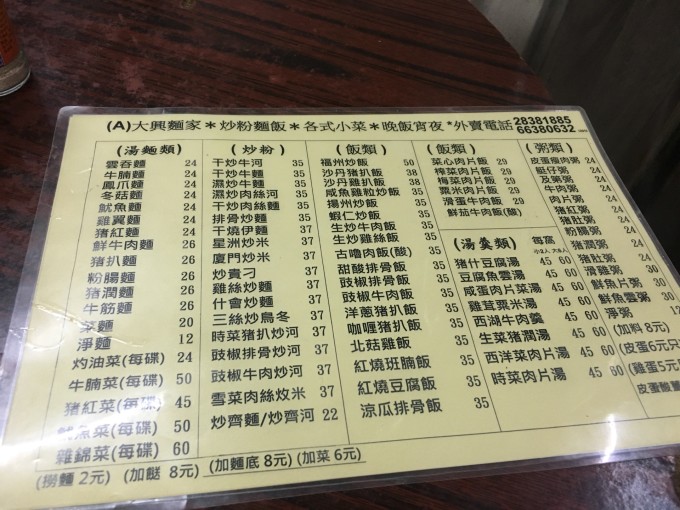 (A)大興麵家＊炒粉麵飯＊各式小菜＊晚飯宵夜*外賣電話 28381885
66380632
(湯麵類)
雲吞麵 24
牛腩麵 24
鳳爪麵 24
冬菇麵 24
魷魚麵 24
雞翼麵 24
猪紅麵 24
鮮牛肉麵 26
猪扒麵 26
粉腸麵 26
猪潤麵 26
牛筋麵 26
菜麵 20
淨麵 12
灼油菜(每碟) 24
牛腩菜(每碟) 50
猪紅菜(每碟) 45
魷魚菜(每碟) 50
雜錦菜(每碟) 60
(炒粉)
干炒牛河 35
干炒牛麵 35
濕炒牛河 35
濕炒肉絲河 35
干炒肉絲麵 35
排骨炒麵 35
干燒伊麵 35
星洲炒米 37
廈門炒米 37
炒貴刁 37
雞絲炒麵 37
什會炒麵 37
三絲炒烏冬 37
時菜猪扒炒河 37
豉椒排骨炒河 37
豉椒牛肉炒河 37
雪菜肉絲炆米 37
炒齊麵/炒齊河 22
(飯類)
福州炒飯 50
沙丹猪扒飯 38
沙丹雞扒飯 38
咸魚雞粒炒飯 38
揚州炒飯 35
蝦仁炒飯 35
生炒牛肉飯 35
生炒雞絲飯 35
古嚕肉飯(酸) 35
甜酸排骨飯 35
豉椒排骨飯 35
豉椒牛肉飯 35
洋蔥猪扒飯 35
咖喱猪扒飯 35
北菇雞飯 35
紅燒班腩飯 35
紅燒豆腐飯 35
涼瓜排骨飯 35
(飯類)
菜心肉片飯 29
榨菜肉片飯 29
梅菜肉片飯 29
粟米肉片飯 29
滑蛋牛肉飯 29
鮮茄牛肉飯(酸)
(湯羹類) 每窩
猪什豆腐湯 45 60
豆腐魚雲湯 45 60
咸蛋肉片菜湯 45 60
雞茸粟米湯 45 60
西湖牛肉羹 45 60
生菜猪潤湯 45 60
西洋菜肉片湯 45 60
時菜肉片湯 45 60
(粥類)
皮蛋瘦肉粥 24
艇仔粥 24
及第粥 24
牛肉粥 24
肉片粥 24
猪紅粥 24
猪肚粥 24
粉腸粥 24
猪潤粥 24
猪肚粥 24
滑雞粥 30
鮮魚片粥 30
鮮魚雲粥 30
淨粥 12
(加料 8元)
(皮蛋6元只
(雞蛋5元
皮蛋酸薑
(撈麵 2元) (加餸 8元) (加麵底 8元) (加菜 6元)